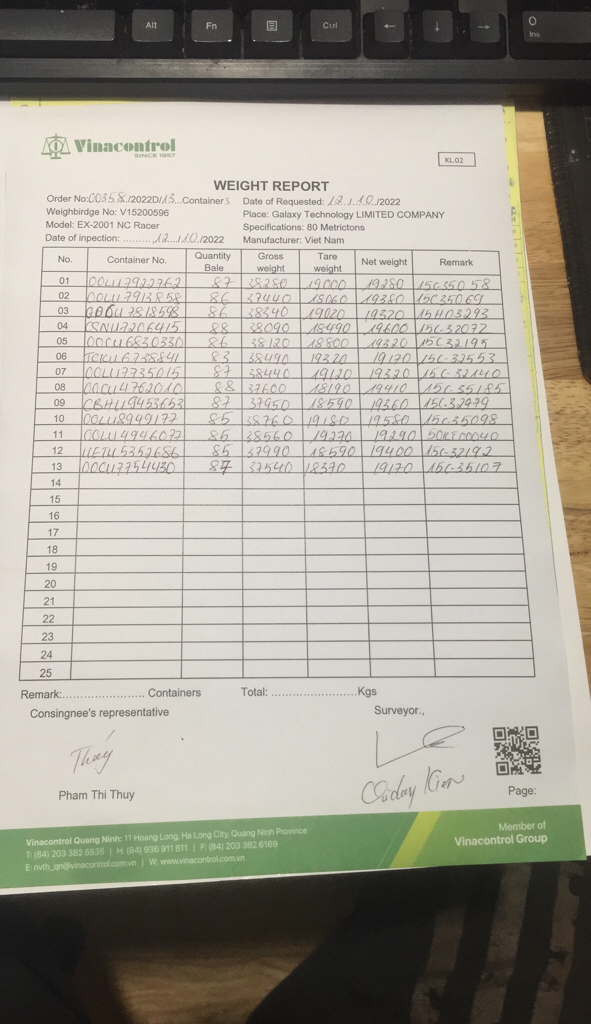 Alt Fn Ctrl ← ↓ → 0 Ins
Vinacontrol
SINCE 1957
KL.02
WEIGHT REPORT
Order No:00358/2022D/13...Containers Date of Requested: 12/10/2022
Weighbirdge No: V15200596 Place: Galaxy Technology LIMITED COMPANY
Model: EX-2001 NC Racer Specifications: 80 Metrictons
Date of inpection: ..........12/10/2022 Manufacturer: Viet Nam
No. Container No. Quantity Bale Gross weight Tare weight Net weight Remark
01 OOLU7922762 87 38280 19000 19280 15C35058
02 OOLU7913858 86 37440 18060 19380 15C35069
03 7818598 86 38340 19020 19320 15H03293
04 CSNU7206415 88 38090 18490 19600 15C-32072
05 OOCU6830330 86 38120 18800 19320 15C32195
06 TCKU6738841 83 38490 19320 19170 15C-32553
07 OOLU7735015 87 38440 19120 19320 15C-32140
08 OOCU4762010 88 37600 18190 19410 15C-35185
09 CBHU9453653 87 37950 18590 19360 15C-32979
10 OOLU8949177 85 38760 19180 19580 15C-35098
11 OOLU4946077 85 38560 19270 19290
12 UETU5352686 85 37990 18590 19400 15C-32192
13 OOCU7754430 87 37540 18370 19170 15C-35107
14
15
16
17
18
19
20
21
22
23
24
25
Remark:........................ Containers Total: ........................Kgs
Consingnee's representative Surveyor.,
Thúy
Pham Thi Thuy Page:
Vinacontrol Quang Ninh: 11 Hoang Long, Ha Long City, Quang Ninh Province
T: (84) 203 382 5535 | H: (84) 936 911 811 | F: (84) 203 382 6169
E: nvth_qn@vinacontrol.com.vn | W: www.vinacontrol.com.vn
Member of
Vinacontrol Group